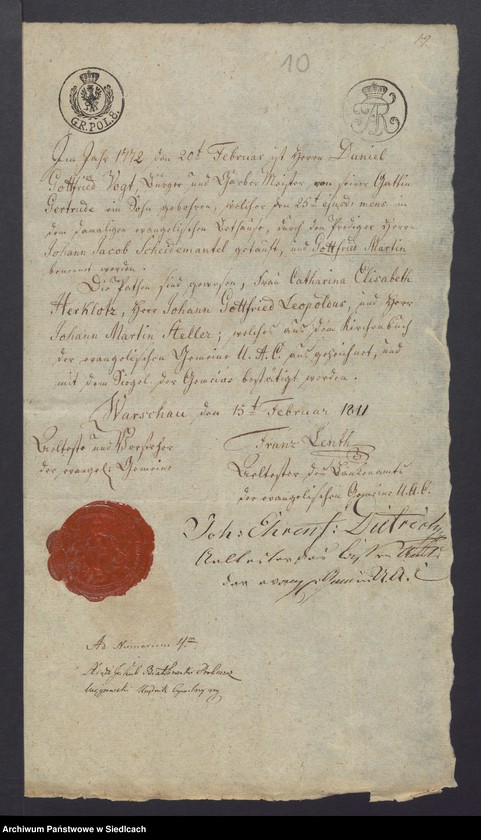 19.
10
GR.POL.8.
FAR
Im Jahr 1772 den 20t Februar ist Herrn Daniel
Gottfried Vogt, Bürger und Gärber Meister von seiner Gattin
Gertrude ein Sohn gebohren, welcher den 25t ejusd: mens: in
dem damaligen evangelischen Bethause, durch den Prediger Herrn
Johann Jacob Scheidemantel getauft, und Gottfried Martin
benennt worden.
Die Pathen sind gewesen, Frau Catharina Elisabeth
Herklotz, Herr Johann Gottfried Leopoldus, und Herr
Johann Martin Heller; welches aus dem Kirchenbuch
der evangelischen Gemeine U.A.C. ausgezeichnet, und
mit dem Siegel der Gemeine bestätiget worden.
Warschau den 15t Februar 1811
Aelteste und Vorsteher
der evangel: Gemeine
Franz Lenth
Aeltester des
der evangelischen Gemeine U.A.C.
Joh: Ehrenf: Dietrich
Aeltester des
der evang: Gemeine U.A.C
Ad Numerum
Archiwum Państwowe w Siedlcach
www.szukajwarchiwach.gov.pl